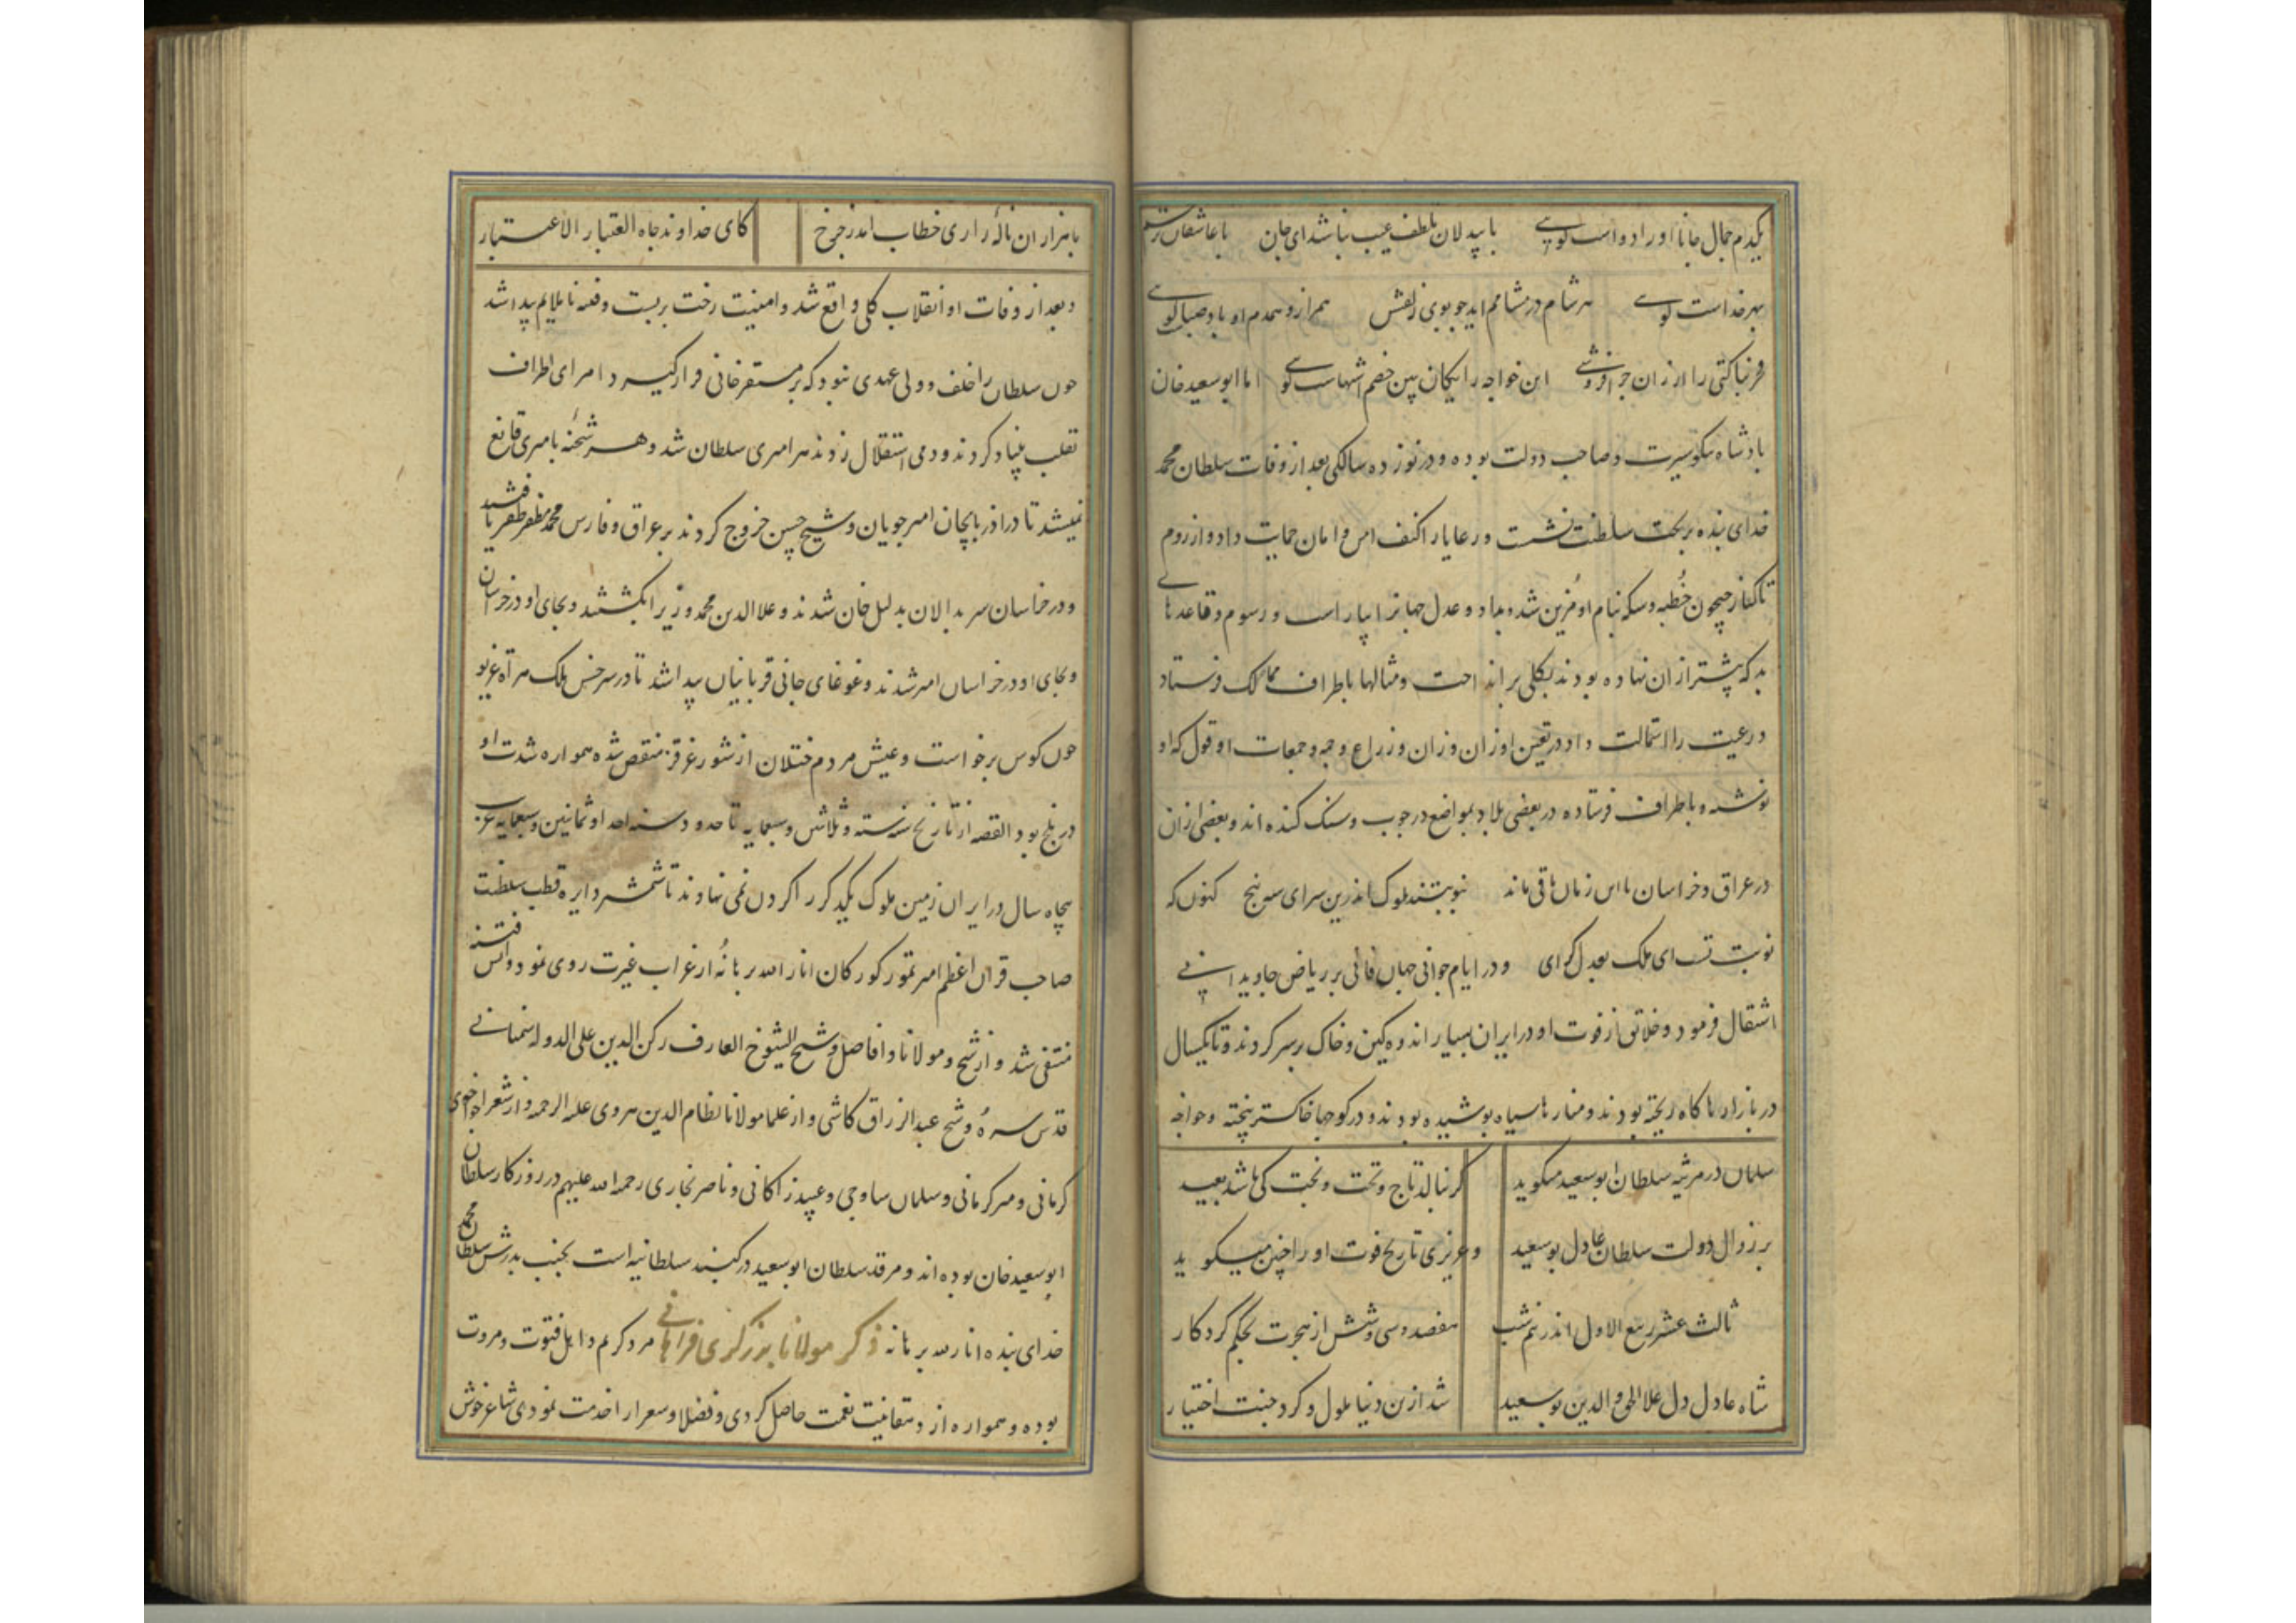 یکدم جمال جانا اورا دواست کویی با بیدلان بلطف عیب نباشد ای جان با عاشقان
بهر خداست کویی هر شام در مشامم اید چو بوی زلفش همراز و همدم او باد صباست کویی
فخر بناکتی را ارزان چرا فروشی این خواجه رایکان بین خصم اشهاست کویی اما ابوسعید خان
بادشاه نیکو سیرت و صاحب دولت بوده و در نوزده سالکی بعد از وفات سلطان محمد
خدای بنده بر تخت سلطنت نشست و رعایا را کنف امن و امان حمایت داد و از روم
تا کنار جیحون خطبه و سکه بنام او مزین شد و بداد و عدل جهانرا بیاراست و رسوم و قاعدهای
بد که پیشتر از ان نهاده بودند بکلی بر انداخت و مثالها باطراف ممالک فرستاد
و رعیت را استمالت داد و در تعیین اوزان وزان و زراع وجه و جمعات او قول که او
نوشته و باطراف فرستاده در بعضی بلاد بمواضع در چوب و سنک کنده اند و بعضی ازان
در عراق و خراسان تا این زمان باقی مانده نوبتند ملوک اندرین سرای سپنج کنون که
نوبت تست ای ملک بعدل کرای و در ایام جوانی جهان فانی بر ریاض جاویدانی
انتقال فرمود و خلائق از فوت او در ایران بسیار اندوهکین و خاک بر سر کردند و تا یکسال
در بازارها کاه ریخته بودند و منارها سیاه پوشیده بودند و در کوچها خاکستر بیخته و خواجه
سلمان در مرثیه سلطان ابوسعید میکوید کر بنالد تاج و تخت و بخت کی باشد بعید
بر زوال دولت سلطان عادل بوسعید و عزیزی تاریخ فوت او را چنین میکوید
ثالث عشر ربیع الاول اندر نیم شب هفصد و سی و شش از هجرت بحکم کردکار
شاه عادل دل علا الحق و الدین بوسعید شد ازین دنیا ملول و کرد جنت اختیار
با هزاران ناله زاری خطاب امد ز چرخ کای خداوند جاه العتبار الاعتبار
و بعد از وفات او انقلاب کلی واقع شد و امنیت رخت بربست و فتنه نا ملایم پیدا شد
چون سلطان را خلف و ولی عهدی نبود که بر مستقر خانی قرار کیرد امرای اطراف
تقلب بنیاد کردند و دمی استقلال زدند هر امیری سلطان شد و هر شحنه بامیری قانع
نمیشد تا در اذربایجان امیر چوپان و شیخ حسن خروج کردند بر عراق و فارس محمد مظفر ظفر یافتند
و در خراسان سربدالان بدلیل خان شدند و علا الدین محمد وزیر را بکشتند و بجای او در خراسان
و بجای او در خراسان امیر شدند و غوغای جانی قربانیان پیدا شد تا در سرخس ملک هراة غریو
چون کوس برخواست و عیش مردم ختلان از شور غرقز منقص شده همواره شدت او
در بلخ بود القصه از تاریخ سنه سته و ثلاثین و سبعمایه تا حدود سنه احد او ثمانین و سبعمایه قرب
پنجاه سال در ایران زمین ملوک یکدکر را کردن نمی نهاوند تا شمشیر دایره قطب سلطنت
صاحب قران اعظم امیر تمور کورکان انار الله برهانه از غراب غیرت روی نمود و اتش فتنه
منتفی شد و از شیخ و مولانا و افاضل و شیخ الشیوخ العارف رکن الدین علی الدوله سمنانی
قدس سره و شیخ عبدالرزاق کاشی و از علما مولانا نظام الدین هروی علیه الرحمه و از شعرا خواجوی
کرمانی و میر کرمانی و سلمان ساوجی و عبید زاکانی و ناصر بخاری رحمه الله علیهم در روزکار سلطان
ابوسعید خان بوده اند و مرقد سلطان ابوسعید در کنبند سلطانیه است بجنب بدرش سلطان محمد
خدای بنده انار الله برهانه ذکر مولانا بزرکری فراهانی مرد کریم و اهل فتوت و مروت
بوده و همواره از دهقانیت نعمت حاصل کردی و فضلا و شعرا را خدمت نمودی شاعر خوش